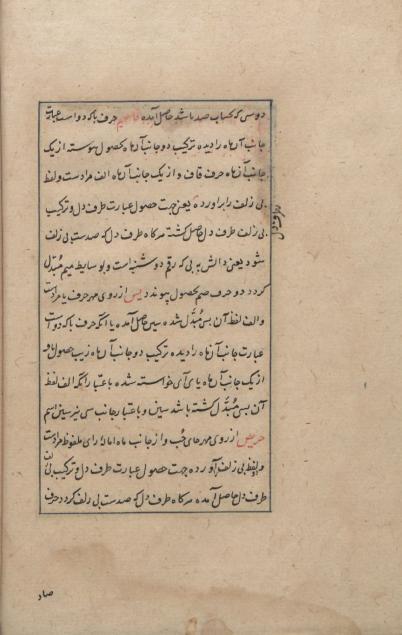 دو سی که بحساب صد باشد حاصل آمده قاسم حرف با که دو است عبارت
جانب آن ماه را دیده ترکیب دو جانب آن ماه بحصول پیوسته از یک
جانب آن ماه حرف قاف و از یک جانب آن ماه الف مرادست و لفظ
بی زلف را برآورده یعنی جهت حصول عبارت طرف دل و ترکیب
بی زلف طرف دل حاصل کشته هرکاه طرف دل که صدست بی زلف
شود یعنی دالش به بی که رقم دوشنبه است و بوسایط میم مبدل
کردد دو حرف صم بحصول پیوندد یس از روی مهر حرف یا مرادست
و الف لفظ آن بس مبدل شده سین حاصل آمده یا انکه حرف با که دو است
عبارت جانب آن ماه را دیده ترکیب دو جانب آن ماه زیب حصول یافته
از یک جانب آن ماه یا ی خواسته شده باعتبار انکه الف لفظ
آن بس مبدل کشته باشد سین و باعتبار جانب سی نیز سین اسم
حریص از روی مهر حای حب و از جانب ماه اماله رای ملفوظ مرادست
و لفظ بی زلف آورده جهت حصول عبارت طرف دل و ترکیب بی زلف
طرف دل حاصل آمده هرکاه طرف دل که صدست بی زلف کردد حرف
صاد